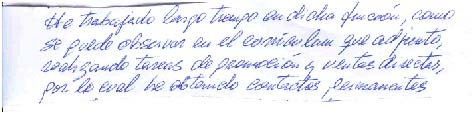 He trabajado largo tiempo en dicha función, como
se puede observar en el curriculum que adjunto,
realizando tareas de promoción y ventas directas,
por lo cual he obtenido contactos permanentes